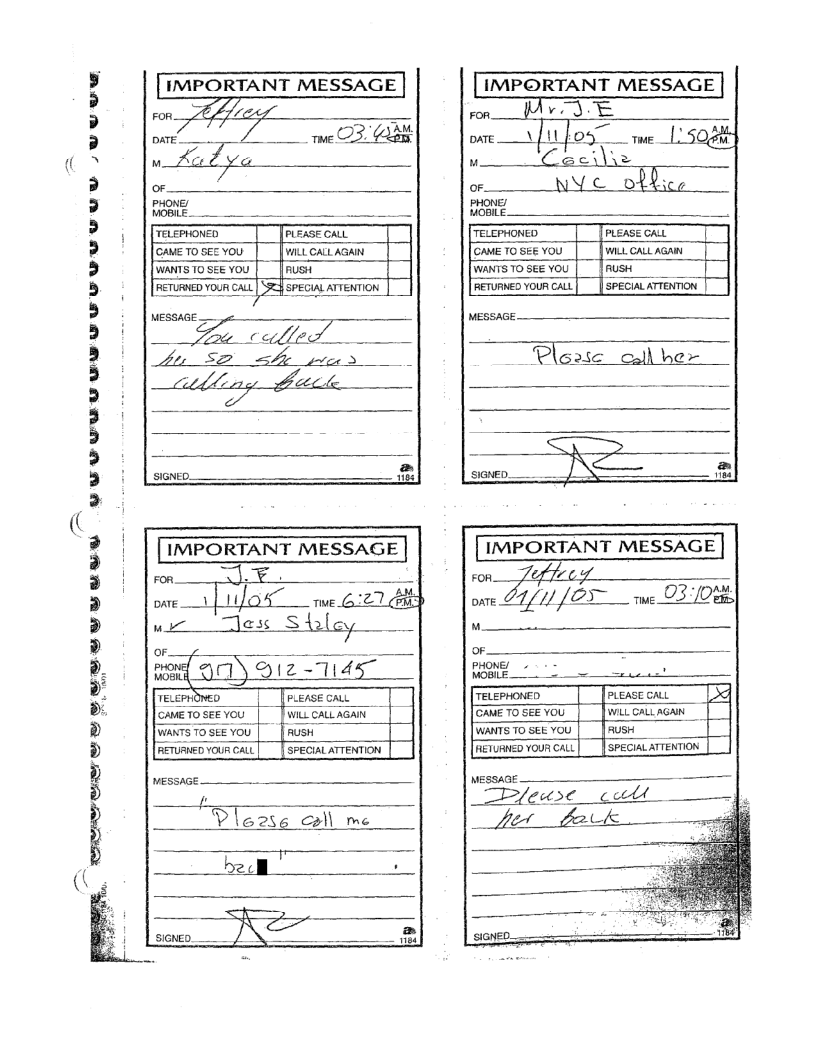 IMPORTANT MESSAGE
FOR Jeffrey
DATE TIME 03:45 A.M. P.M.
M Katya
OF
PHONE/
MOBILE
TELEPHONED PLEASE CALL
CAME TO SEE YOU WILL CALL AGAIN
WANTS TO SEE YOU RUSH
RETURNED YOUR CALL X SPECIAL ATTENTION
MESSAGE
You called
her so she was
calling back
SIGNED
1184
IMPORTANT MESSAGE
FOR Mr. J.E
DATE 1/11/05 TIME 1:50 A.M. P.M.
M Cecilia
OF NYC office
PHONE/
MOBILE
TELEPHONED PLEASE CALL
CAME TO SEE YOU WILL CALL AGAIN
WANTS TO SEE YOU RUSH
RETURNED YOUR CALL SPECIAL ATTENTION
MESSAGE
Please call her
SIGNED
1184
IMPORTANT MESSAGE
FOR J.E.
DATE 1/11/05 TIME 6:27 A.M. P.M.
M Jess Staley
OF
PHONE/
MOBILE (917) 912-7145
TELEPHONED PLEASE CALL
CAME TO SEE YOU WILL CALL AGAIN
WANTS TO SEE YOU RUSH
RETURNED YOUR CALL SPECIAL ATTENTION
MESSAGE
"Please call me
bac"
SIGNED
1184
IMPORTANT MESSAGE
FOR Jeffrey
DATE 01/11/05 TIME 03:10 A.M. P.M.
M
OF
PHONE/
MOBILE
TELEPHONED PLEASE CALL X
CAME TO SEE YOU WILL CALL AGAIN
WANTS TO SEE YOU RUSH
RETURNED YOUR CALL SPECIAL ATTENTION
MESSAGE
Please call
her back
SIGNED
1184